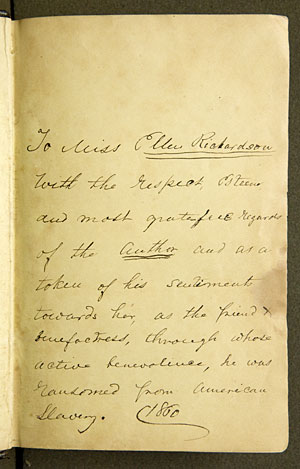 To Miss Ellen Richardson
With the respect, Esteem
and most grateful regards
of the Author and as a
token of his sentiments
towards her, as the friend &
benefactress, through whose
active benevolence, he was
ransomed from American
Slavery. 1860